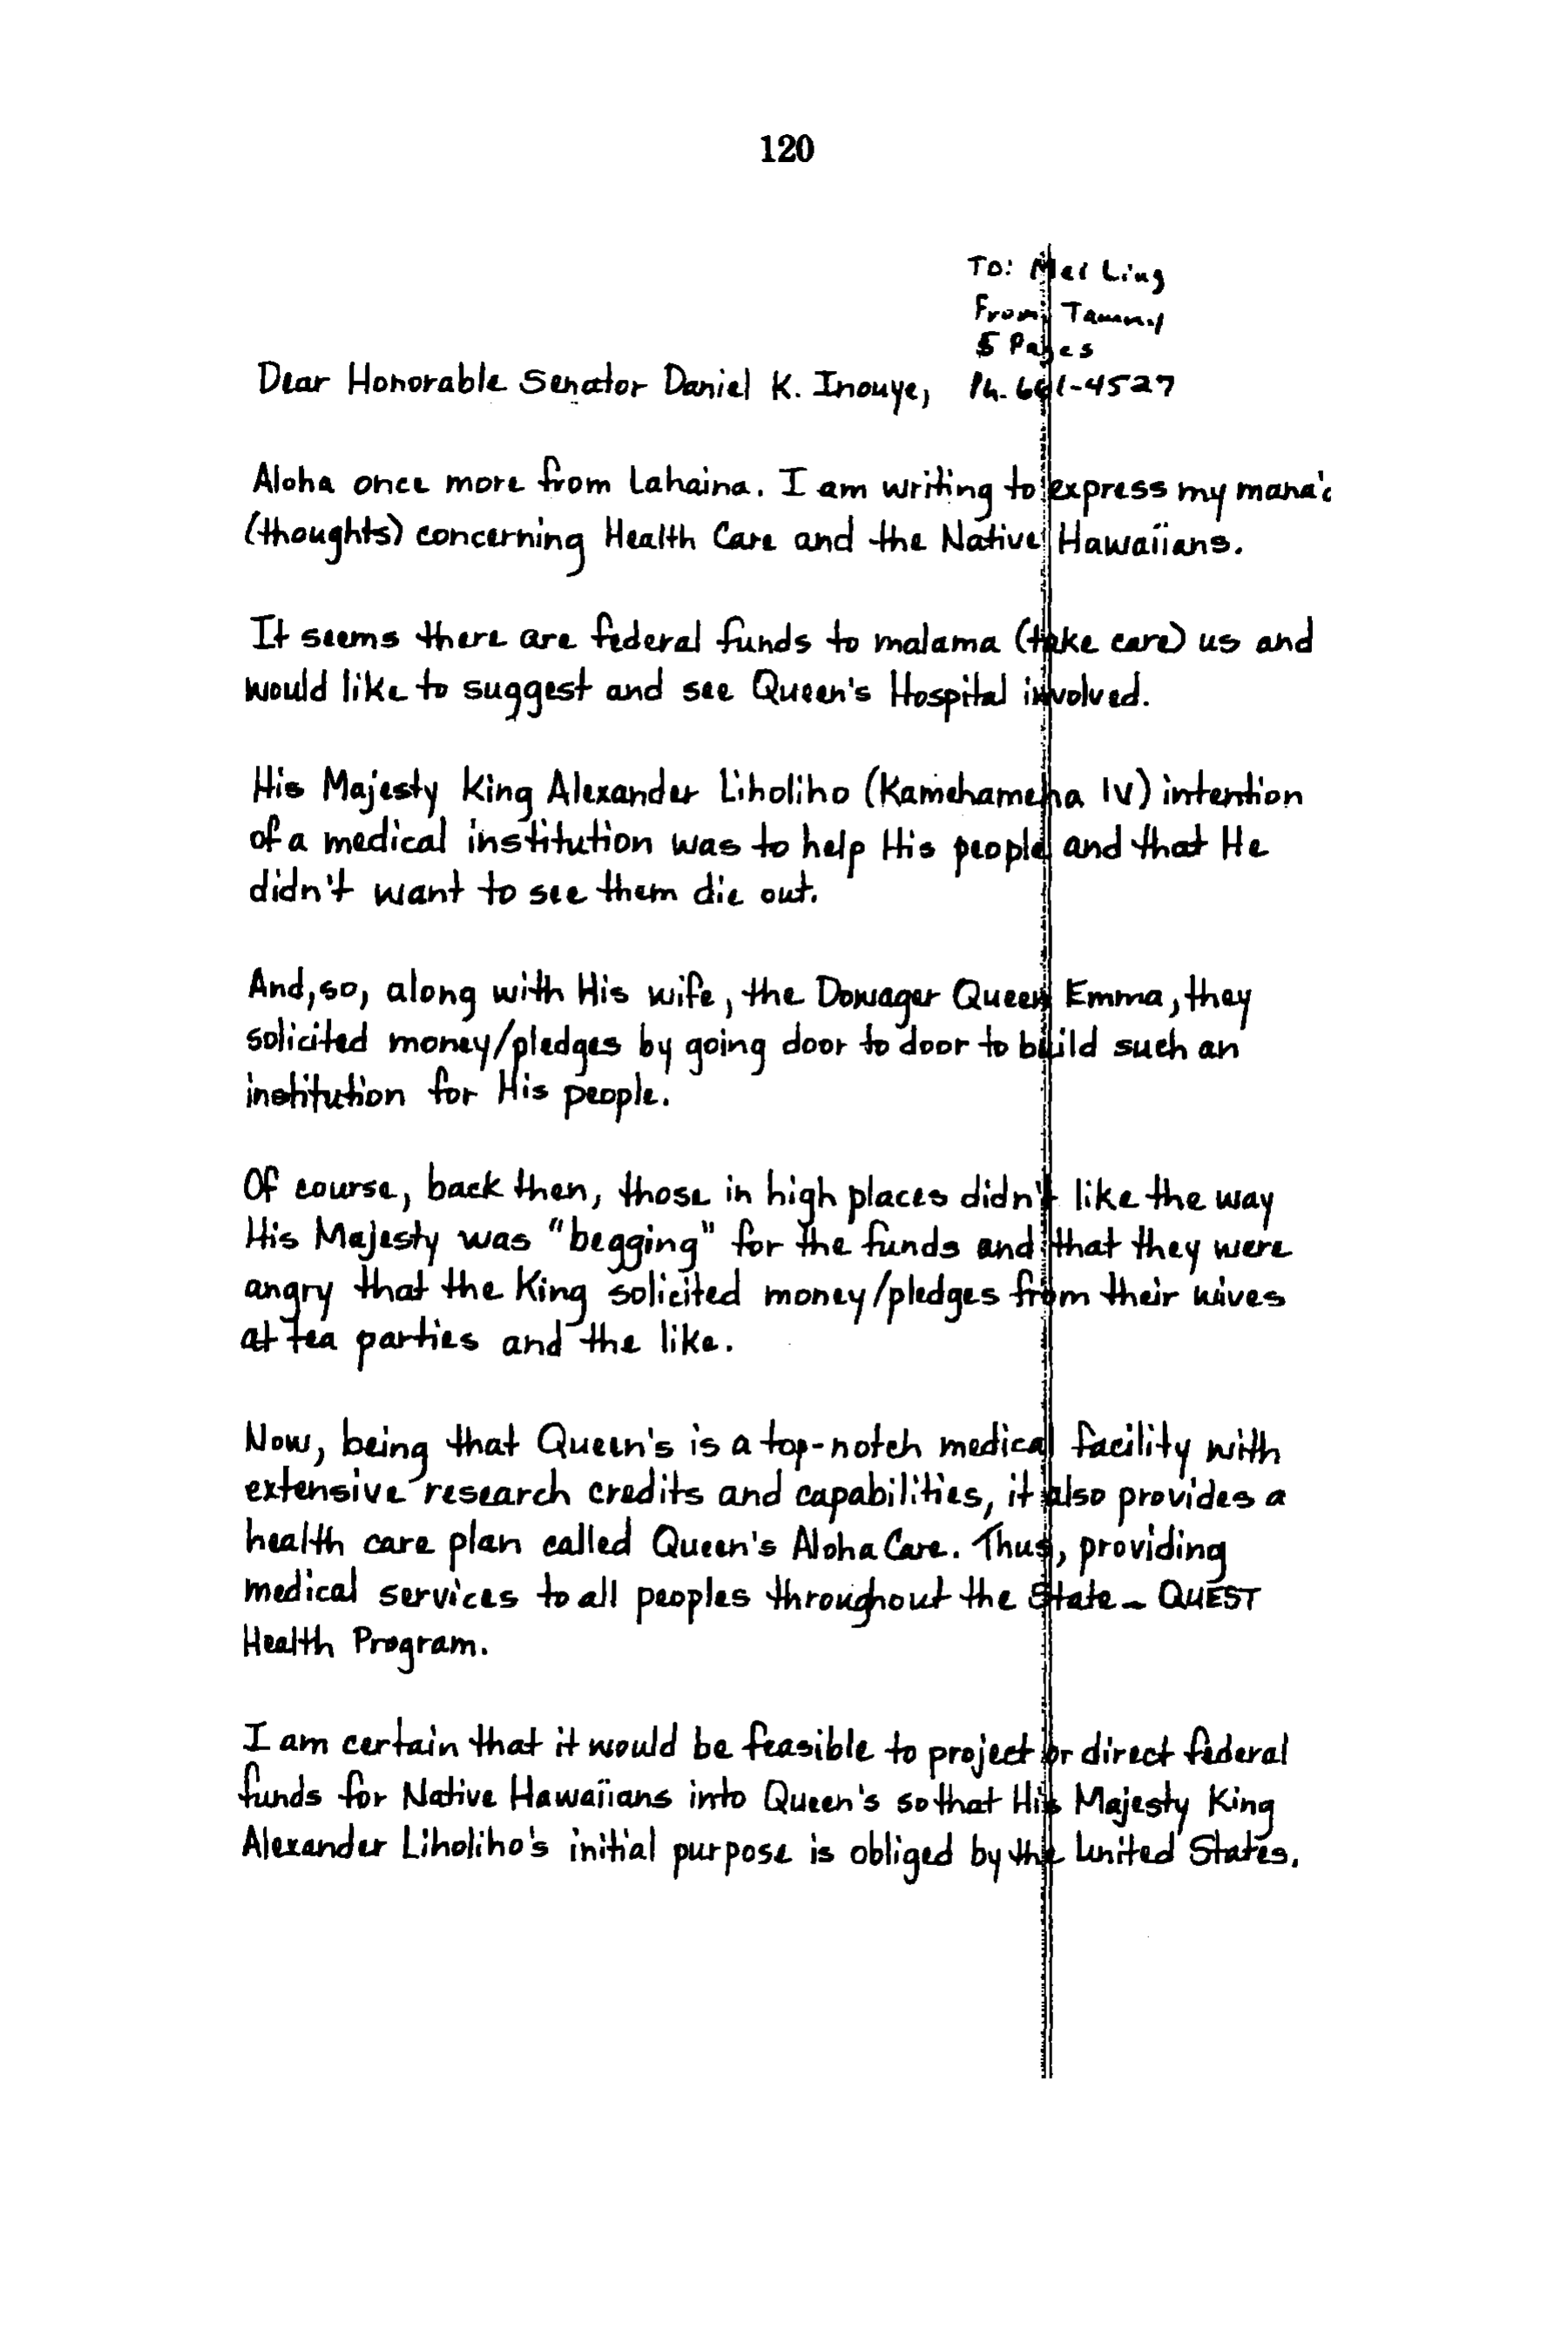 120
To: Mei Ling
From: Tammy
5 Pages
Dear Honorable Senator Daniel K. Inouye, Ph. 661-4527
Aloha once more from Lahaina. I am writing to express my mana'o
(thoughts) concerning Health Care and the Native Hawaiians.
It seems there are federal funds to malama (take care) us and
would like to suggest and see Queen's Hospital involved.
His Majesty King Alexander Liholiho (Kamehameha IV) intention
of a medical institution was to help His people and that He
didn't want to see them die out.
And, so, along with His wife, the Dowager Queen Emma, they
solicited money/pledges by going door to door to build such an
institution for His people.
Of course, back then, those in high places didn't like the way
His Majesty was "begging" for the funds and that they were
angry that the King solicited money/pledges from their wives
at tea parties and the like.
Now, being that Queen's is a top-notch medical facility with
extensive research credits and capabilities, it also provides a
health care plan called Queen's Aloha Care. Thus, providing
medical services to all peoples throughout the State - QUEST
Health Program.
I am certain that it would be feasible to project or direct federal
funds for Native Hawaiians into Queen's so that His Majesty King
Alexander Liholiho's initial purpose is obliged by the United States.